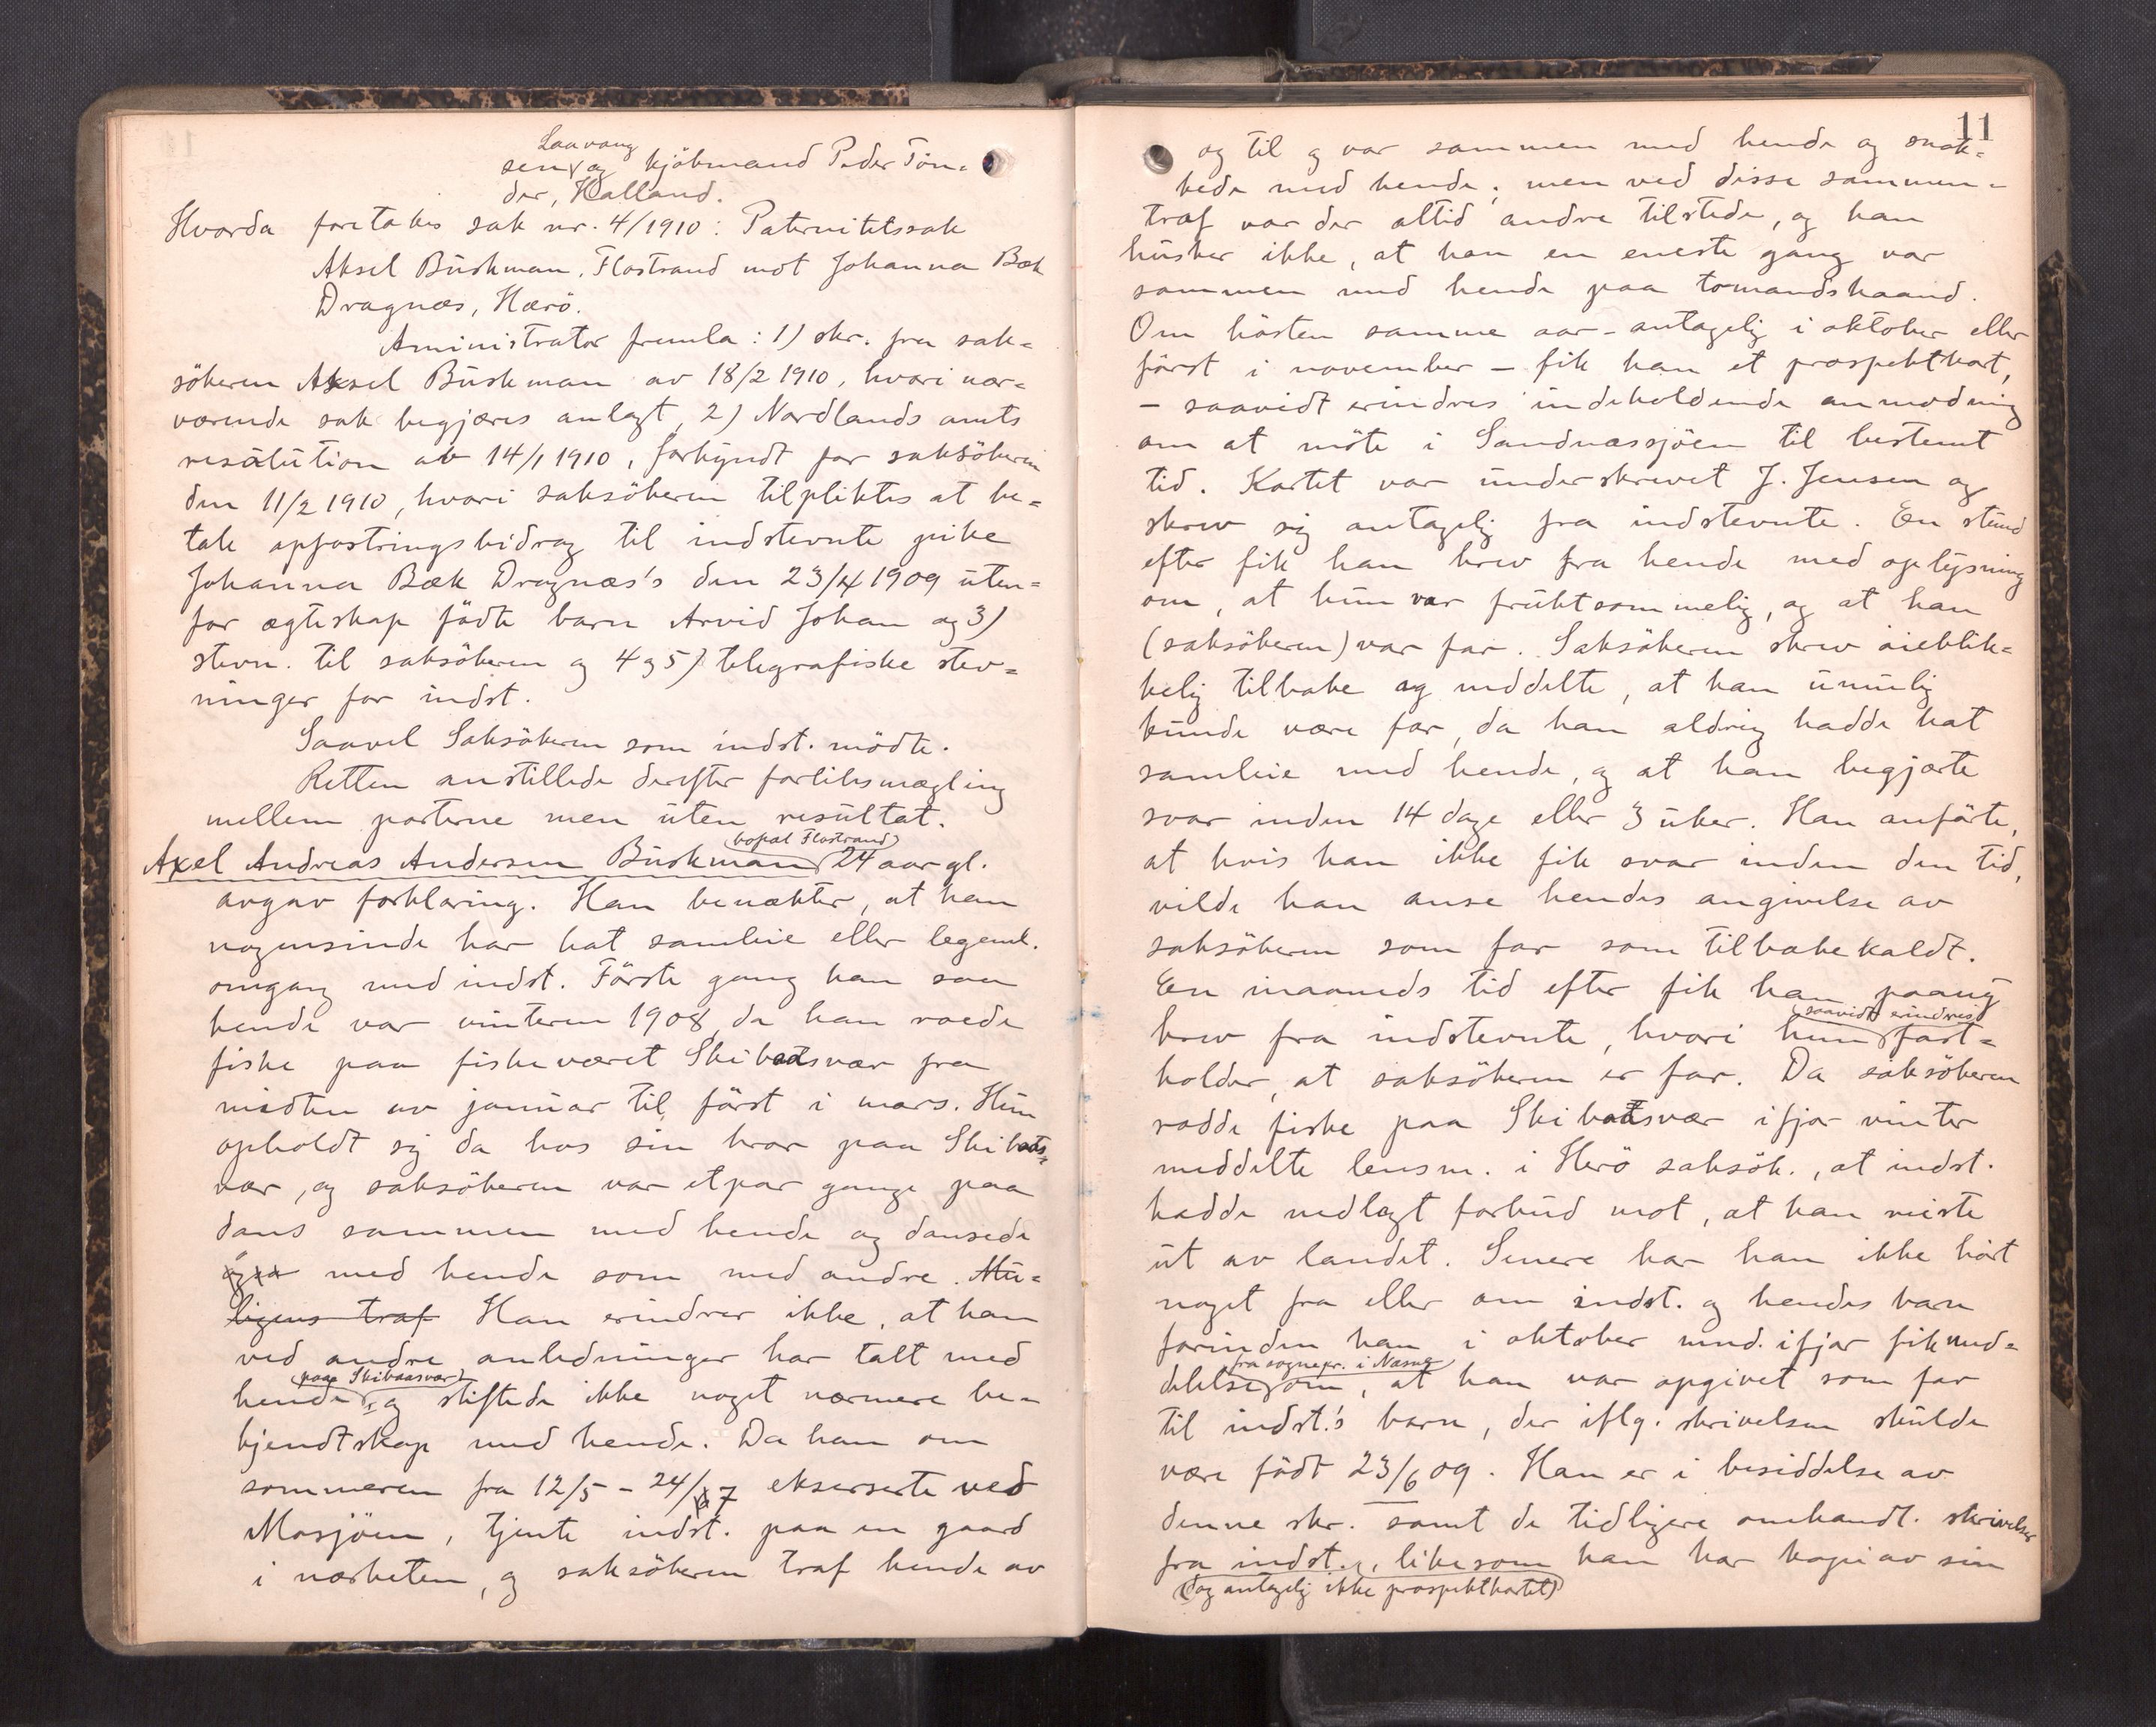 Laavang
sen og kjöbmand Peder Tön-
der, Halland.
Hvorda foretokes sak nr. 4/1910: Paternitetssak
Aksel Buskman, Flostrand mot Johanna Bæk
Dragnæs, Herö.
Aministrator fremla: 1) skr. fra sak-
sökeren Aksel Buskman av 18/2 1910, hvori nær-
værende sak begjæres anlagt, 2) Nordlands amts
resolution av 14/1 1910, forkyndt for saksökeren
den 11/2 1910, hvori saksökeren tilpliktes at be-
tale opfostringsbidrag til indstevnte pike
Johanna Bæk Dragnæs's den 23/4 1909 uten-
for ægteskap födte barn Arvid Johan og 3)
stevn. til saksökeren og 4 og 5) telegrafiske stev-
ninger for indst.
Saavel Saksökeren som indst. mödte.
Retten anstillede derefter forliksmægling
mellem parterne men uten resultat.
bopæl Flostrand
Axel Andreas Andersen Buskman 24 aar gl.
avgav forklaring. Han benækter, at han
nogensinde har hat samleie eller legeml.
omgang med indst. Förste gang han saa
hende var vinteren 1908, da han roede
fiske paa fiskeværet Skibaatsvær fra
midten av januar til först i mars. Hun
opholdt sig da hos sin bror paa Skibaats-
vær, og saksökeren var etpar gange paa
dans sammen med hende og dansede
ogsa med hende som med andre. Mu-
ligens traf Han erindrer ikke, at han
ved andre anledninger har talt med
paa Skibaasvær
hende, og stiftede ikke noget nærmere be-
kjendtskap med hende. Da han om
sommeren fra 12/5 - 24/7 ekserserte ved
Mosjöen, tjente indst. paa en gaard
i nærheten, og saksökeren traf hende av
11
og til og var sammen med hende og snak-
kede med hende; men ved disse sammen-
traf var der altid andre tilstede, og han
husker ikke, at han en eneste gang var
sammen med hende paa tomandshaand.
Om hösten samme aar - antagelig i oktober eller
först i november - fik han et prospektkort,
- saavidt erindres indeholdende anmodning
om at möte i Sandnæssjöen til bestemt
tid. Kortet var underskrevet J. Jensen og
skrev sig antagelig fra indstevnte. En stund
efter fik han brev fra hende med oplysning
om, at hun var fruktsommelig, og at han
(saksökeren) var far. Saksökeren skrev öieblik-
kelig tilbake og meddelte, at han umulig
kunde være far, da han aldrig hadde hat
samleie med hende, og at han begjærte
svar inden 14 dage eller 3 uker. Han anförte,
at hvis han ikke fik svar inden den tid,
vilde han anse hendes angivelse av
saksökeren som far som tilbakekaldt.
En maaneds tid efter fik han paany
saavidt erindres
brev fra indstevnte, hvori hun fast-
holder, at saksökeren er far. Da saksökeren
rodde fiske paa Skibaatsvær ifjor vinter
meddelte lensm. i Herö saksök., at indst.
hadde nedlagt forbud mot, at han reiste
ut av landet. Senere har han ikke hört
noget fra eller om indst. og hendes barn
forinden han i oktober mnd. ifjor fik med-
fra sognepr. i Næsna
delelse om, at han var opgivet som far
til indst.'s barn, der iflg. skrivelsen skulde
være födt 23/6 09. Han er i besiddelse av
denne skr. samt de tidligere omhandl. skrivelser
fra indst., likesom han har kopi av sin
(dog antagelig ikke prospektkortet)